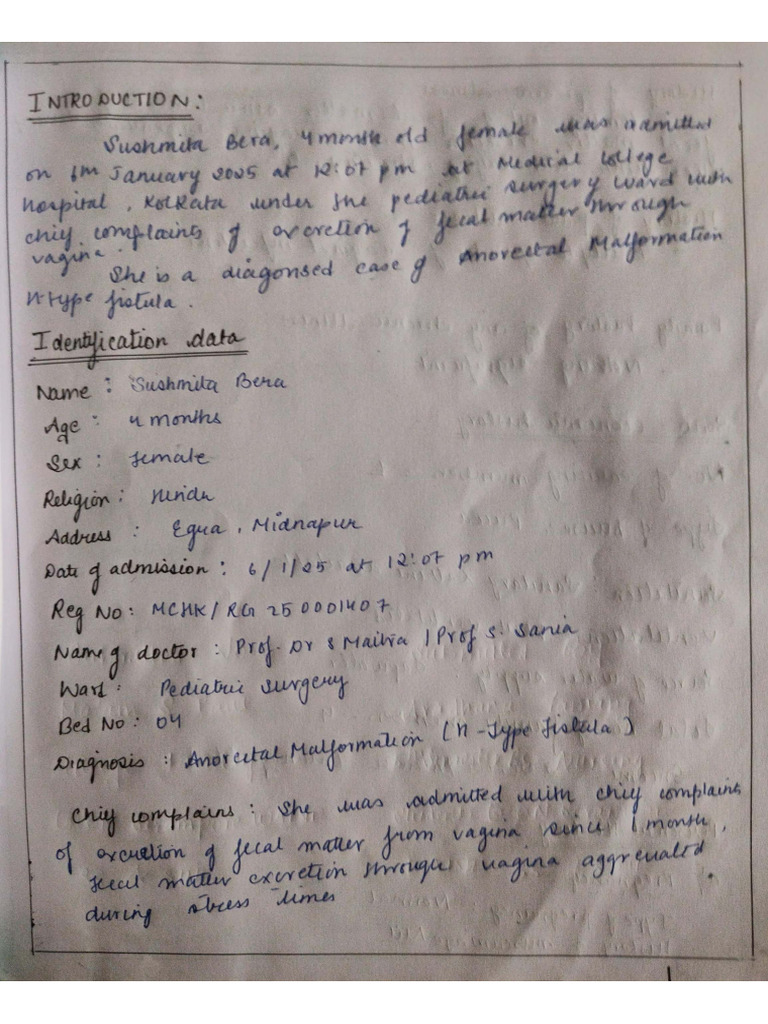 INTRODUCTION:
Sushmita Bera, 4 month old female was admitted
on 6th January 2025 at 12:07 pm at Medical College
hospital, Kolkata under the pediatric surgery ward with
chief complaints of excretion of fecal matter through
vagina.
She is a diagonsed case of Anorectal Malformation
H-type fistula.
Identification data
Name : Sushmita Bera
Age : 4 months
Sex : female
Religion : Hindu
Address : Egra, Midnapur
Date of admission : 6/1/25 at 12:07 pm
Reg No: MCHK/RG 250001407
Name of doctor : Prof. Dr S Maitra / Prof S.
Ward : Pediatric Surgery
Bed No: 04
Diagnosis : Anorectal Malformation (H-Type fistula)
Chief complains : She was admitted with chief complains
of excretion of fecal matter from vagina since 1 month,
fecal matter excretion through vagina aggrevated
during stress times